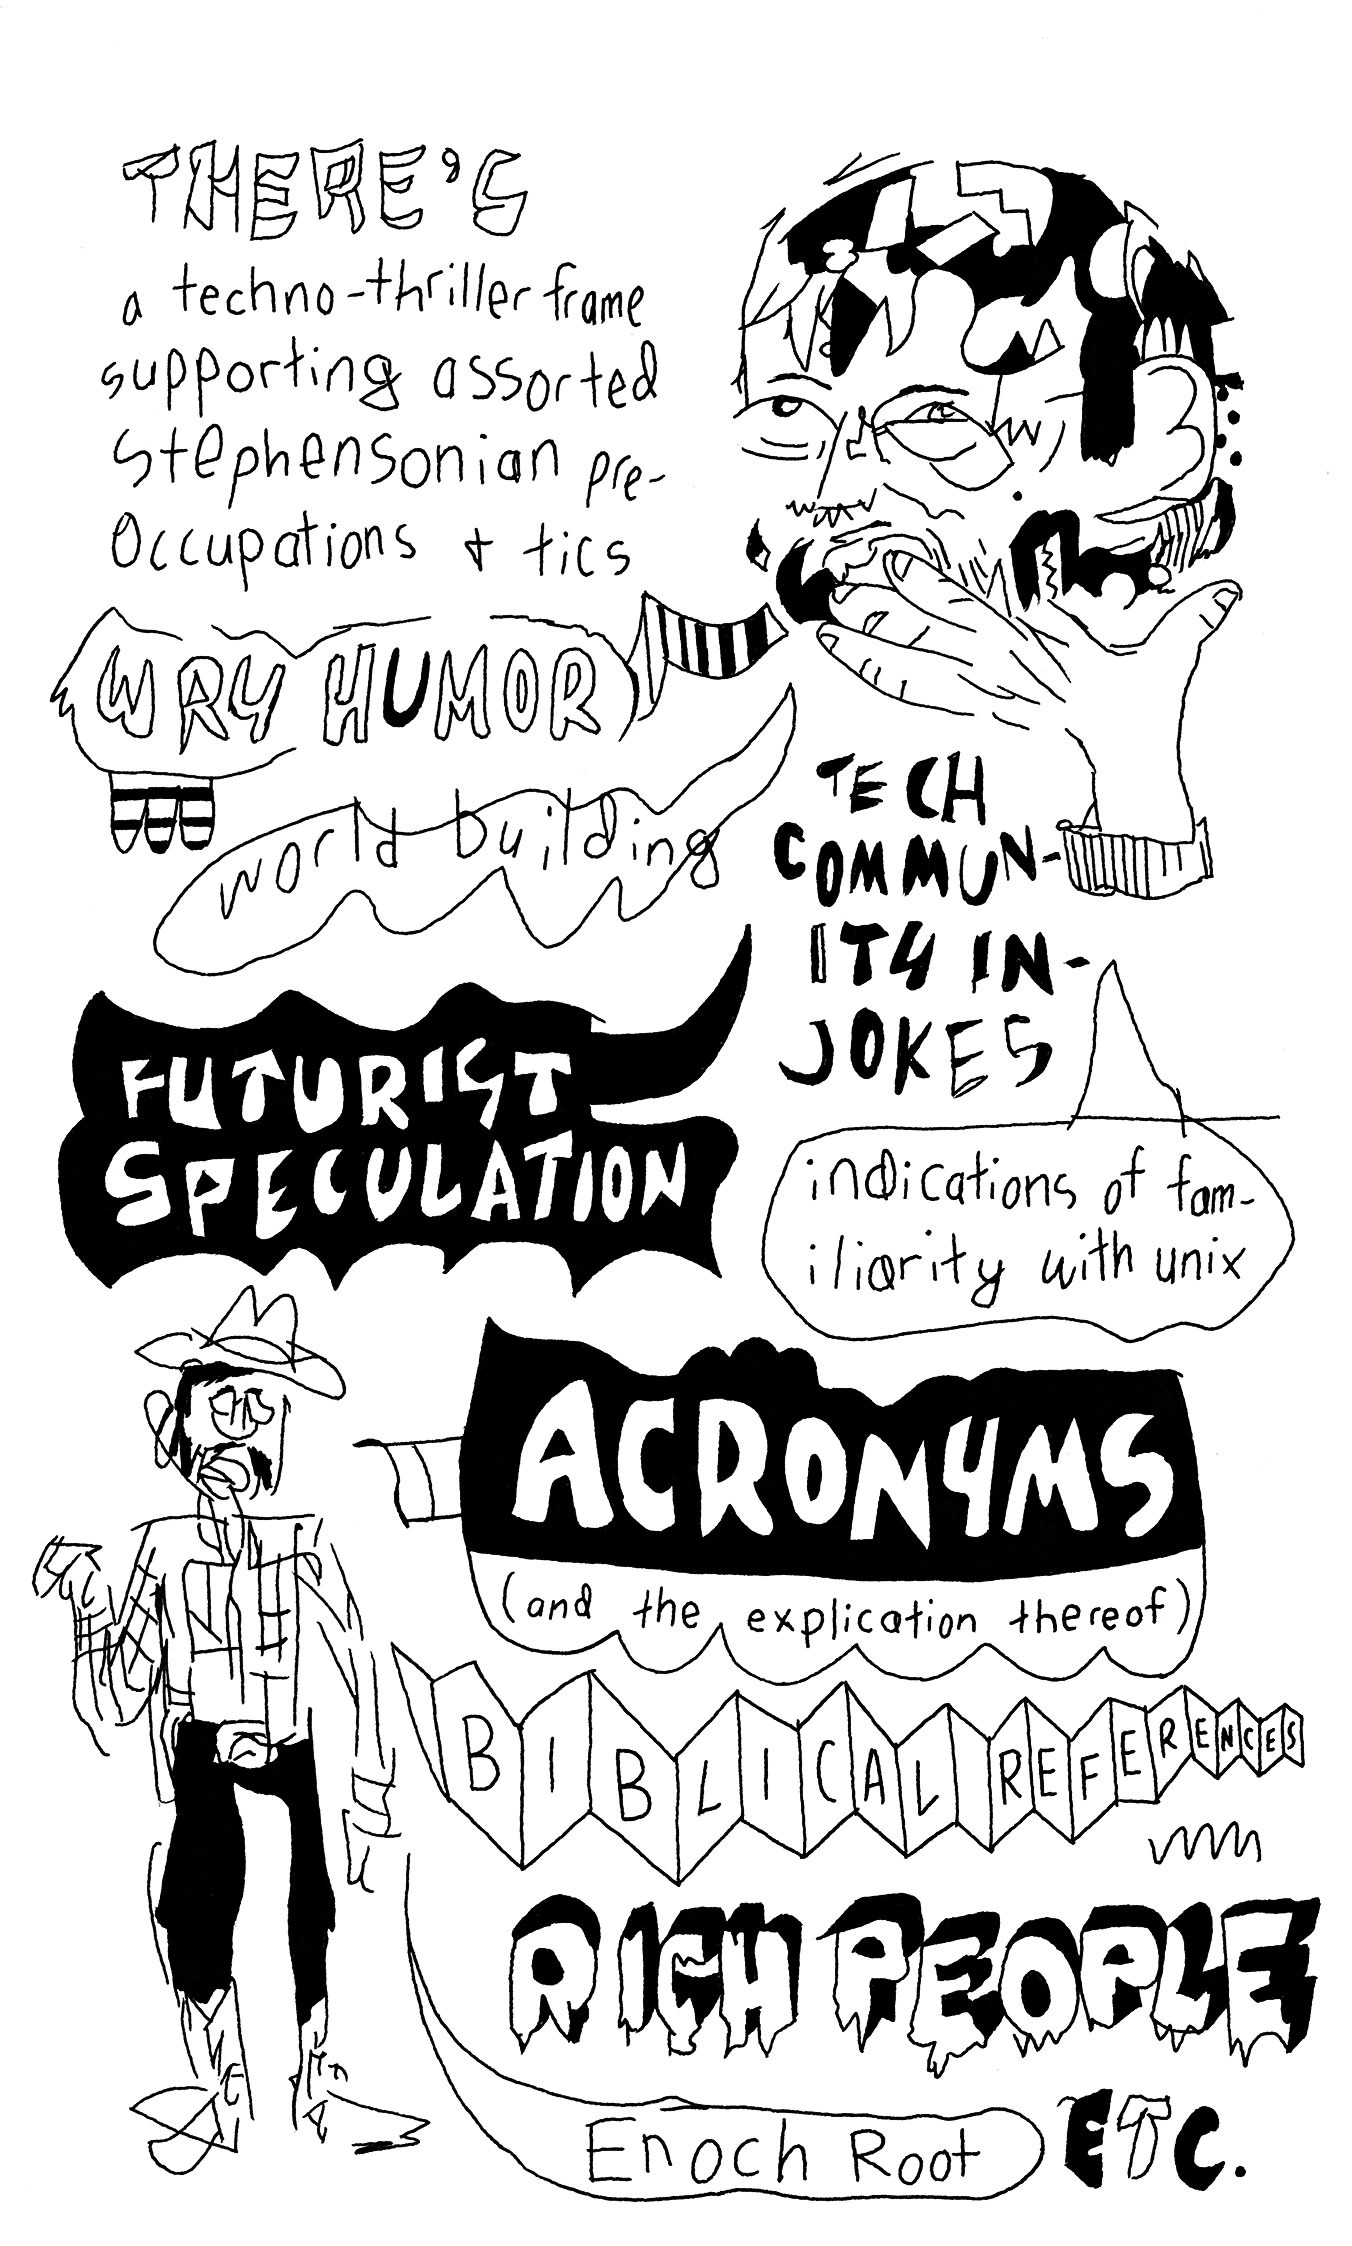 THERE'S
a techno-thriller frame
supporting assorted
Stephensonian pre-
occupations + tics
WRY HUMOR
world building
TECH
COMMUN-
ITY IN-
JOKES
FUTURIST
SPECULATION
indications of fam-
iliarity with unix
ACRONYMS
(and the explication thereof)
BIBLICAL REFERENCES
RICH PEOPLE
Enoch Root
ETC.